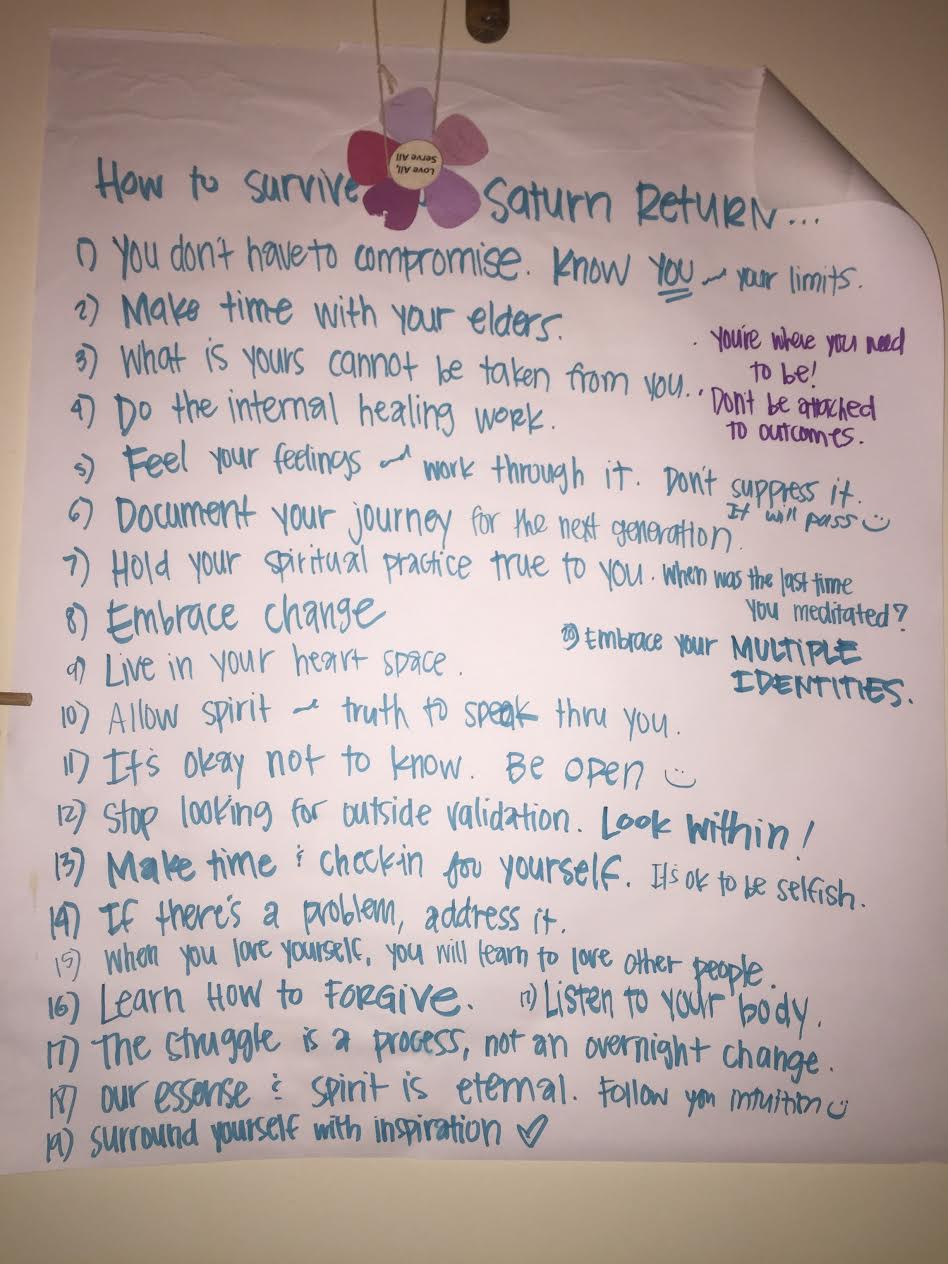 Love All,
Serve All
How to survive Saturn Return...
1) You don't have to compromise. Know YOU ~ your limits.
2) Make time with your elders.
3) What is yours cannot be taken from you.
· You're where you need
to be!
· Don't be attached
to outcomes.
4) Do the internal healing work.
5) Feel your feelings ~ work through it. Don't suppress it.
It will pass ☺
6) Document your journey for the next generation.
7) Hold your spiritual practice true to you. When was the last time
you meditated?
8) Embrace change
20) Embrace your MULTIPLE
IDENTITIES.
9) Live in your heart space.
10) Allow spirit ~ truth to speak thru you.
11) It's okay not to know. Be open ☺
12) Stop looking for outside validation. Look within!
13) Make time & check-in for yourself. It's ok to be selfish.
14) If there's a problem, address it.
15) When you love yourself, you will learn to love other people.
16) Learn How to FORGIVE. 17) Listen to your body.
17) The struggle is a process, not an overnight change.
18) Our essense & spirit is eternal. Follow you intuition ☺
19) Surround yourself with inspiration ♡